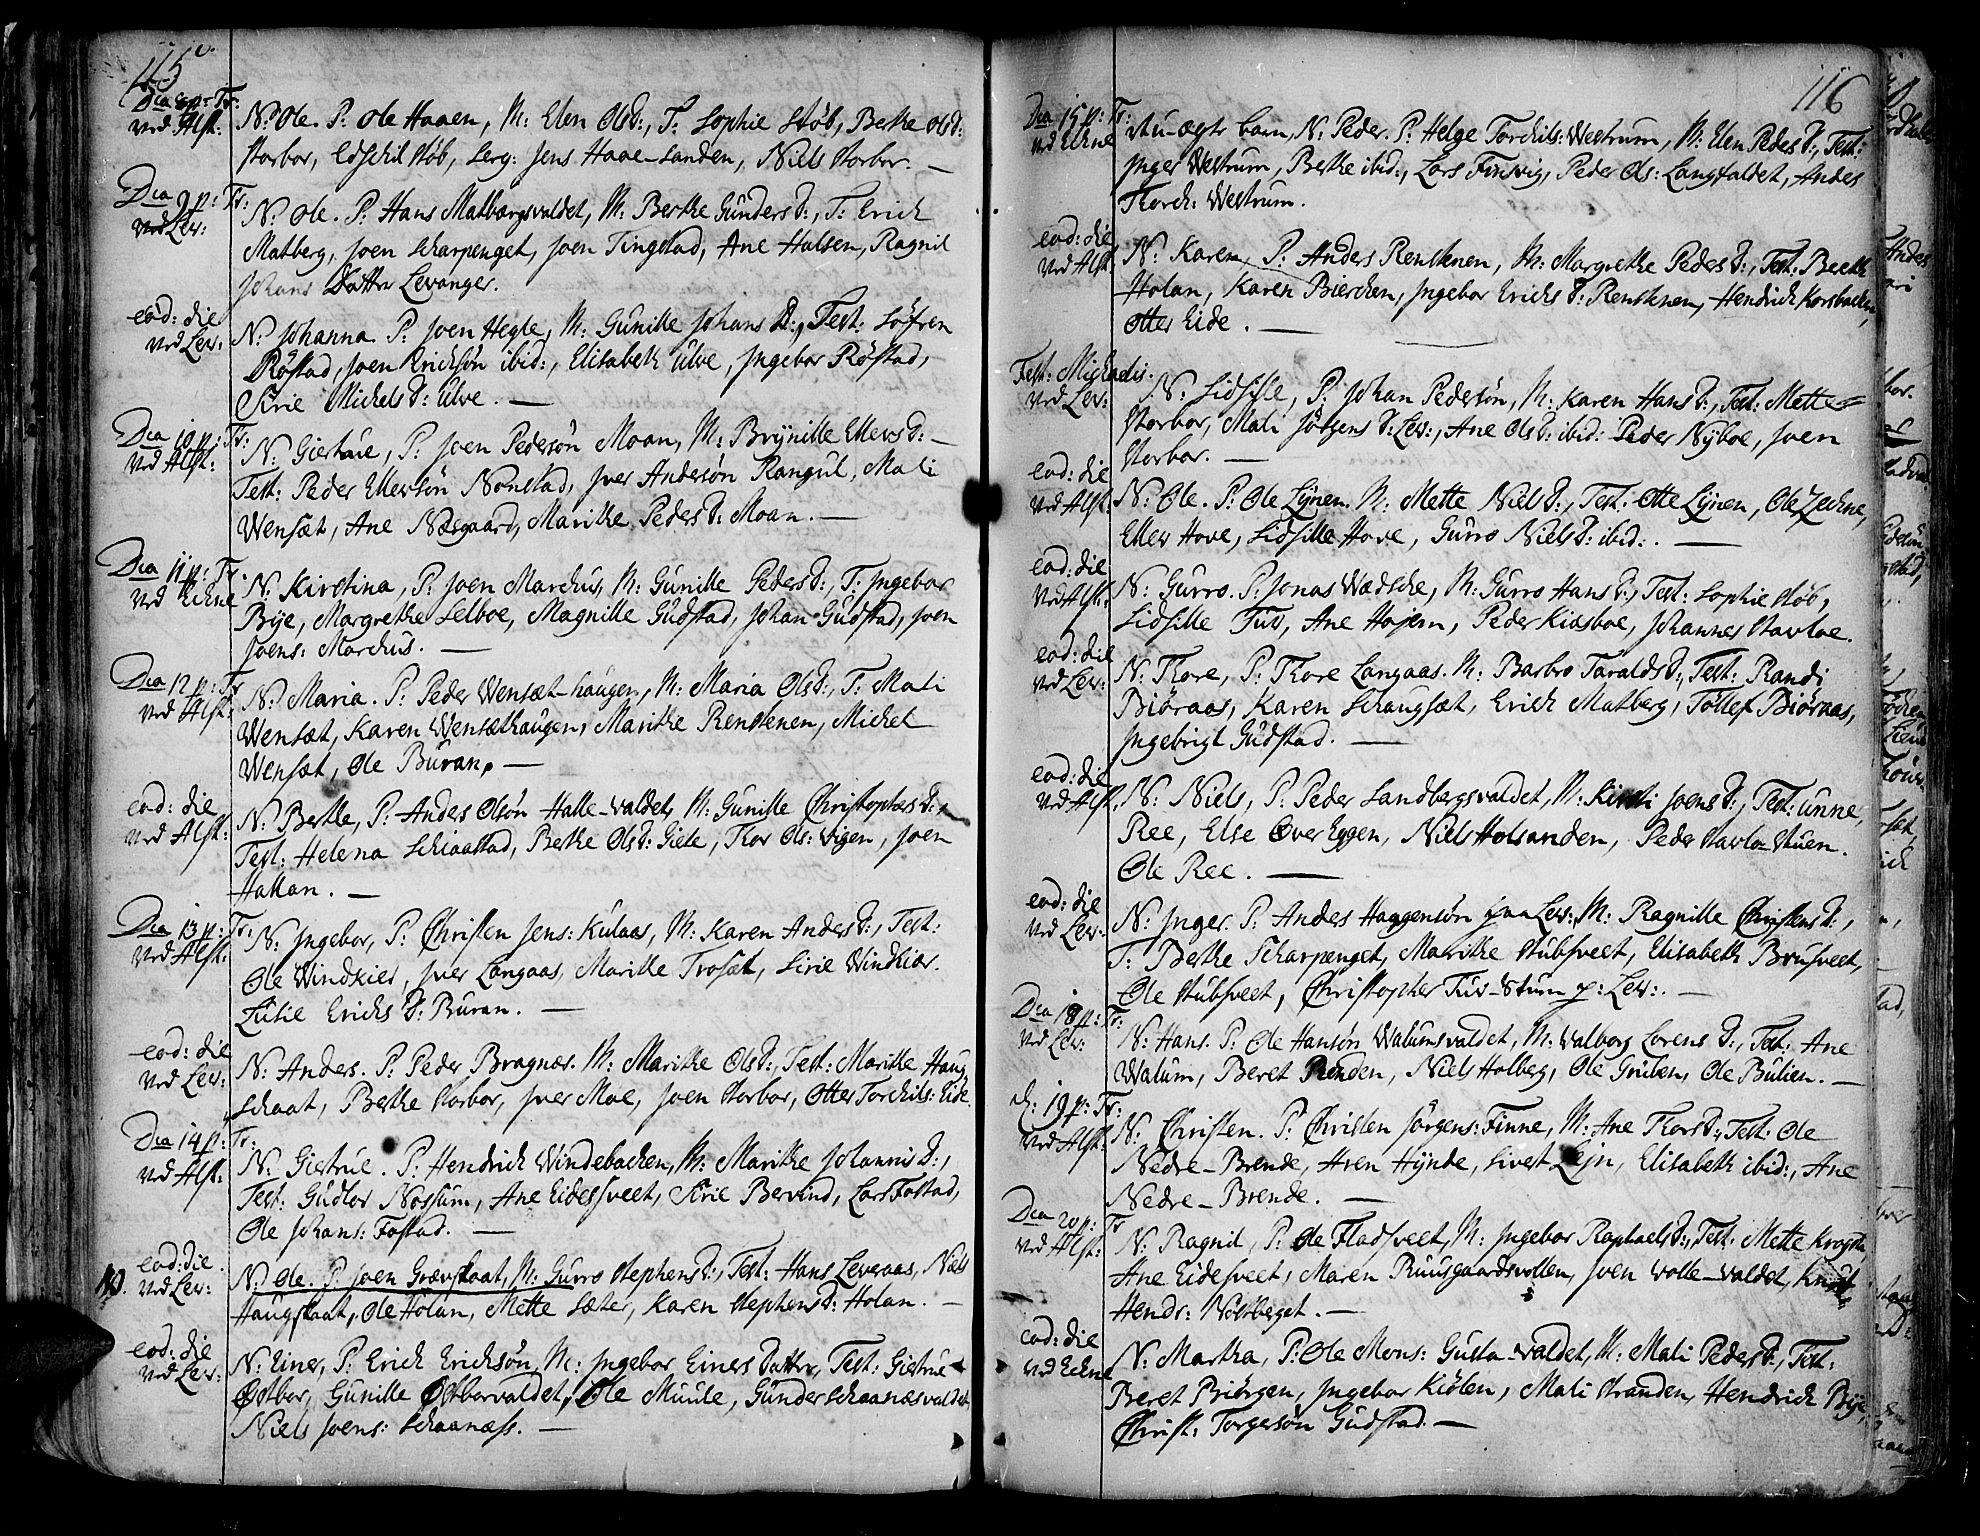 115
Dca 8 p: Tr:
ved Alst:
N: Ole. P: Ole Haaen, M: Elen Olsd:, T: Sophie Støb, Berthe Olsd:
Storbor, Edschil Støb, Serg: Jens Haae-sanden, Niels Storbor. —
Dca 9 p: Tr:
ved Lev:
N: Ole. P: Hans Matbargsvaldet, M: Berthe Gundersd:, T: Erich
Matberg, Joen Scharpenget, Joen Tingstad, Ane Halsen, Ragnil
Johans Datter Levanger.
eod: die
ved Lev:
N: Johanna. P: Joen Hegle, M: Gunille Johans D:, Test: Søfren
Røstad, Joen Erichsøn ibid:, Elisabeth Ulve, Ingebor Røstad,
Sirie Michels D: Ulve. —
Dca 10 p: Tr:
ved Alst:
N: Giertrue, P: Joen Pedersøn Moan, M: Brynille Ellevsd: —
Test: Peder Ellevsøn Nonstad, Iver Andersøn Rangul, Mali
Wensæt, Ane Næsgaard, Marithe Pedesd: Moan. —
Dca 11 p: Tr.
ved Eckne
N: Kirstina, P: Joen Marchus, M: Gunille Pedesd:, T: Ingebor
Bye, Margrethe Selboe, Magnille Gudstad, Johan Gudstad, Joen
Joens: Marchus. —
Dca 12 p: Tr
ved Alst:
N: Maria. P: Peder Wensæt-haugen, M: Maria Olsd:, T: Mali
Wensæt, Karen Wensæthaugen, Marithe Renstenen, Michel
Wensæt, Ole Buran. —
eod: die
ved Alst:
N: Berthe, P: Andes Olsøn Halle-valdet, M: Gunille Christophersd:
Test: Helena Schiaastad, Berthe Olsd: Giete, Thor Ols: Vigen, Joen
Hallan. —
Dca 13 p: Tr:
ved Alst:
N: Ingebor, P: Christen Jens: Kulaas, M: Karen Andersd:, Test:
Ole Windkier, Iver Langaas, Marithe Trosæt, Sirie Windkier.
Zitsie Erichs D: Buran. —
eod: die
ved Lev:
N: Andes. P: Peder Bragnær. M: Marithe Olsd:, Test: Marithe Haug
schaat, Berthe Storbor, Iver Moe, Joen Storbor, Otter Torchils: Eide.
Dca 14 p: Tr:
ved Alst:
N: Giertrue. P: Hendrich Windebacken, M: Marithe Johannisd:,
Test: Gudlov Nossum, Ane Eidessveet, Sirie Bervind, Lars Fostad,
Ole Johans: Fostad. —
eod: die
ved Lev:
N: Ole. P: Joen Grævskaat, M: Gurro Stephensd:, Test: Hans Leveraas, Niels
Haugskaat, Ole Holan, Mette Sæter, Karen Stephensd: Holan. —
eod: die
ved Lev:
N: Einer, P: Erich Erichsøn, M: Ingebor Einers Datter, Test: Giertrue
Østbor, Gunille Østborvaldet, Ole Muule, Gunder Schaanæsvaldet,
Niels Joens: Schaanæss. —
116
Dca 15 p: Tr:
ved Eckne
et u-ægte barn, N: Peder. P: Helge Torchils: Westrum, M: Elen Pedesd:, Test:
Inger Westrum, Berthe ibid:, Lars Finsvig, Peder Ols: Langfaldet, Andes
Thorch: Westrum.
eod: die
ved Alst:
N: Karen, P: Anders Renstenen, M: Margrethe Pedesd:, Test: Bereth
Holan, Karen Bierchen, Ingebor Erichs D: Renstenen, Hendrich Korsbacken,
Otter Eide. —
Fest: Michaelis.
ved Lev:
N: Lidsille, P: Johan Pedersøn, M: Karen Hansd:, Test: Mette
Storbor, Mali Jørgens D: Lev:, Ane Olsd: ibid: Peder Nyboe, Joen
Storbor. —
eod: die
ved Alst:
N: Ole. P: Ole Lynen. M: Mette Nielsd:, Test: Otte Lynen, Ole Zechne,
Ellev Hove, Lidsille Hove, Gurro Nielsd: ibid:. —
eod: die
ved Alst:
N: Gurro. P: Jonas Wædsche, M: Gurro Hansd:, Test: Sophie Støb,
Lidsille Tuv, Ane Hojem, Peder Kiesboe, Johannes Stavloe.
eod: die
ved Lev:
N: Thore, P: Thore Langaas. M: Barbro Taraldsd:, Test: Randi
Biøraas, Karen Schaugsæt, Erich Matberg, Tøllef Biøraas,
Ingebrigt Gudstad. —
eod: die
ved Alst,
N: Niels, P: Peder Sandbergsvaldet, M: Kirsti Joensd:, Test: Unne,
Ree, Else Over Eggen, Niels Holsanden, Peder Stavlo-Stuen.
Ole Ree. —
eod: die
ved Lev:
N: Inger. P: Andes Haggensøn paa Lev:, M: Ragnille Christensd:,
T: Berthe Scharpenget, Marithe Stubsveet, Elisabeth Brusveet,
Ole Stubsveet, Christopher Tuv-Stum p: Lev:. —
Dca 18 p: Tr:
ved Lev:
N: Hans. P: Ole Hansøn Walumsvaldet, M: Walborg Lorens D:, Test: Ane
Walum, Beret Rinden, Niels Holberg, Ole Gruben, Ole Bulien. —
d: 19 p: Tr:
ved Alst:
N: Christen. P: Christen Jørgens: Finne, M: Ane Thorsd:, Test: Ole
Nedre-Brende, Aren Hynde, Sivert Lejn, Elisabeth ibid:, Ane
Nedre-Brende. —
Dca 20 p: Tr
ved Alst:
N: Ragnil, P: Ole Fladsveet, M: Ingebor Raphaelsd:, Test: Mette
Ane Eidesveet, Maren Ruusgaardsvollen, Joen Wolle-valdet, Knut
Hends: Nossberget. —
eod: die
ved Eckne
N: Martha, P: Ole Mons: Gusta-valdet, M: Mali Pedesd:, Test:
Beret Biørgen, Ingebor Kiølen, Mali Stranden, Hendrich Bye,
Christ: Torgersøn Gudstad. —